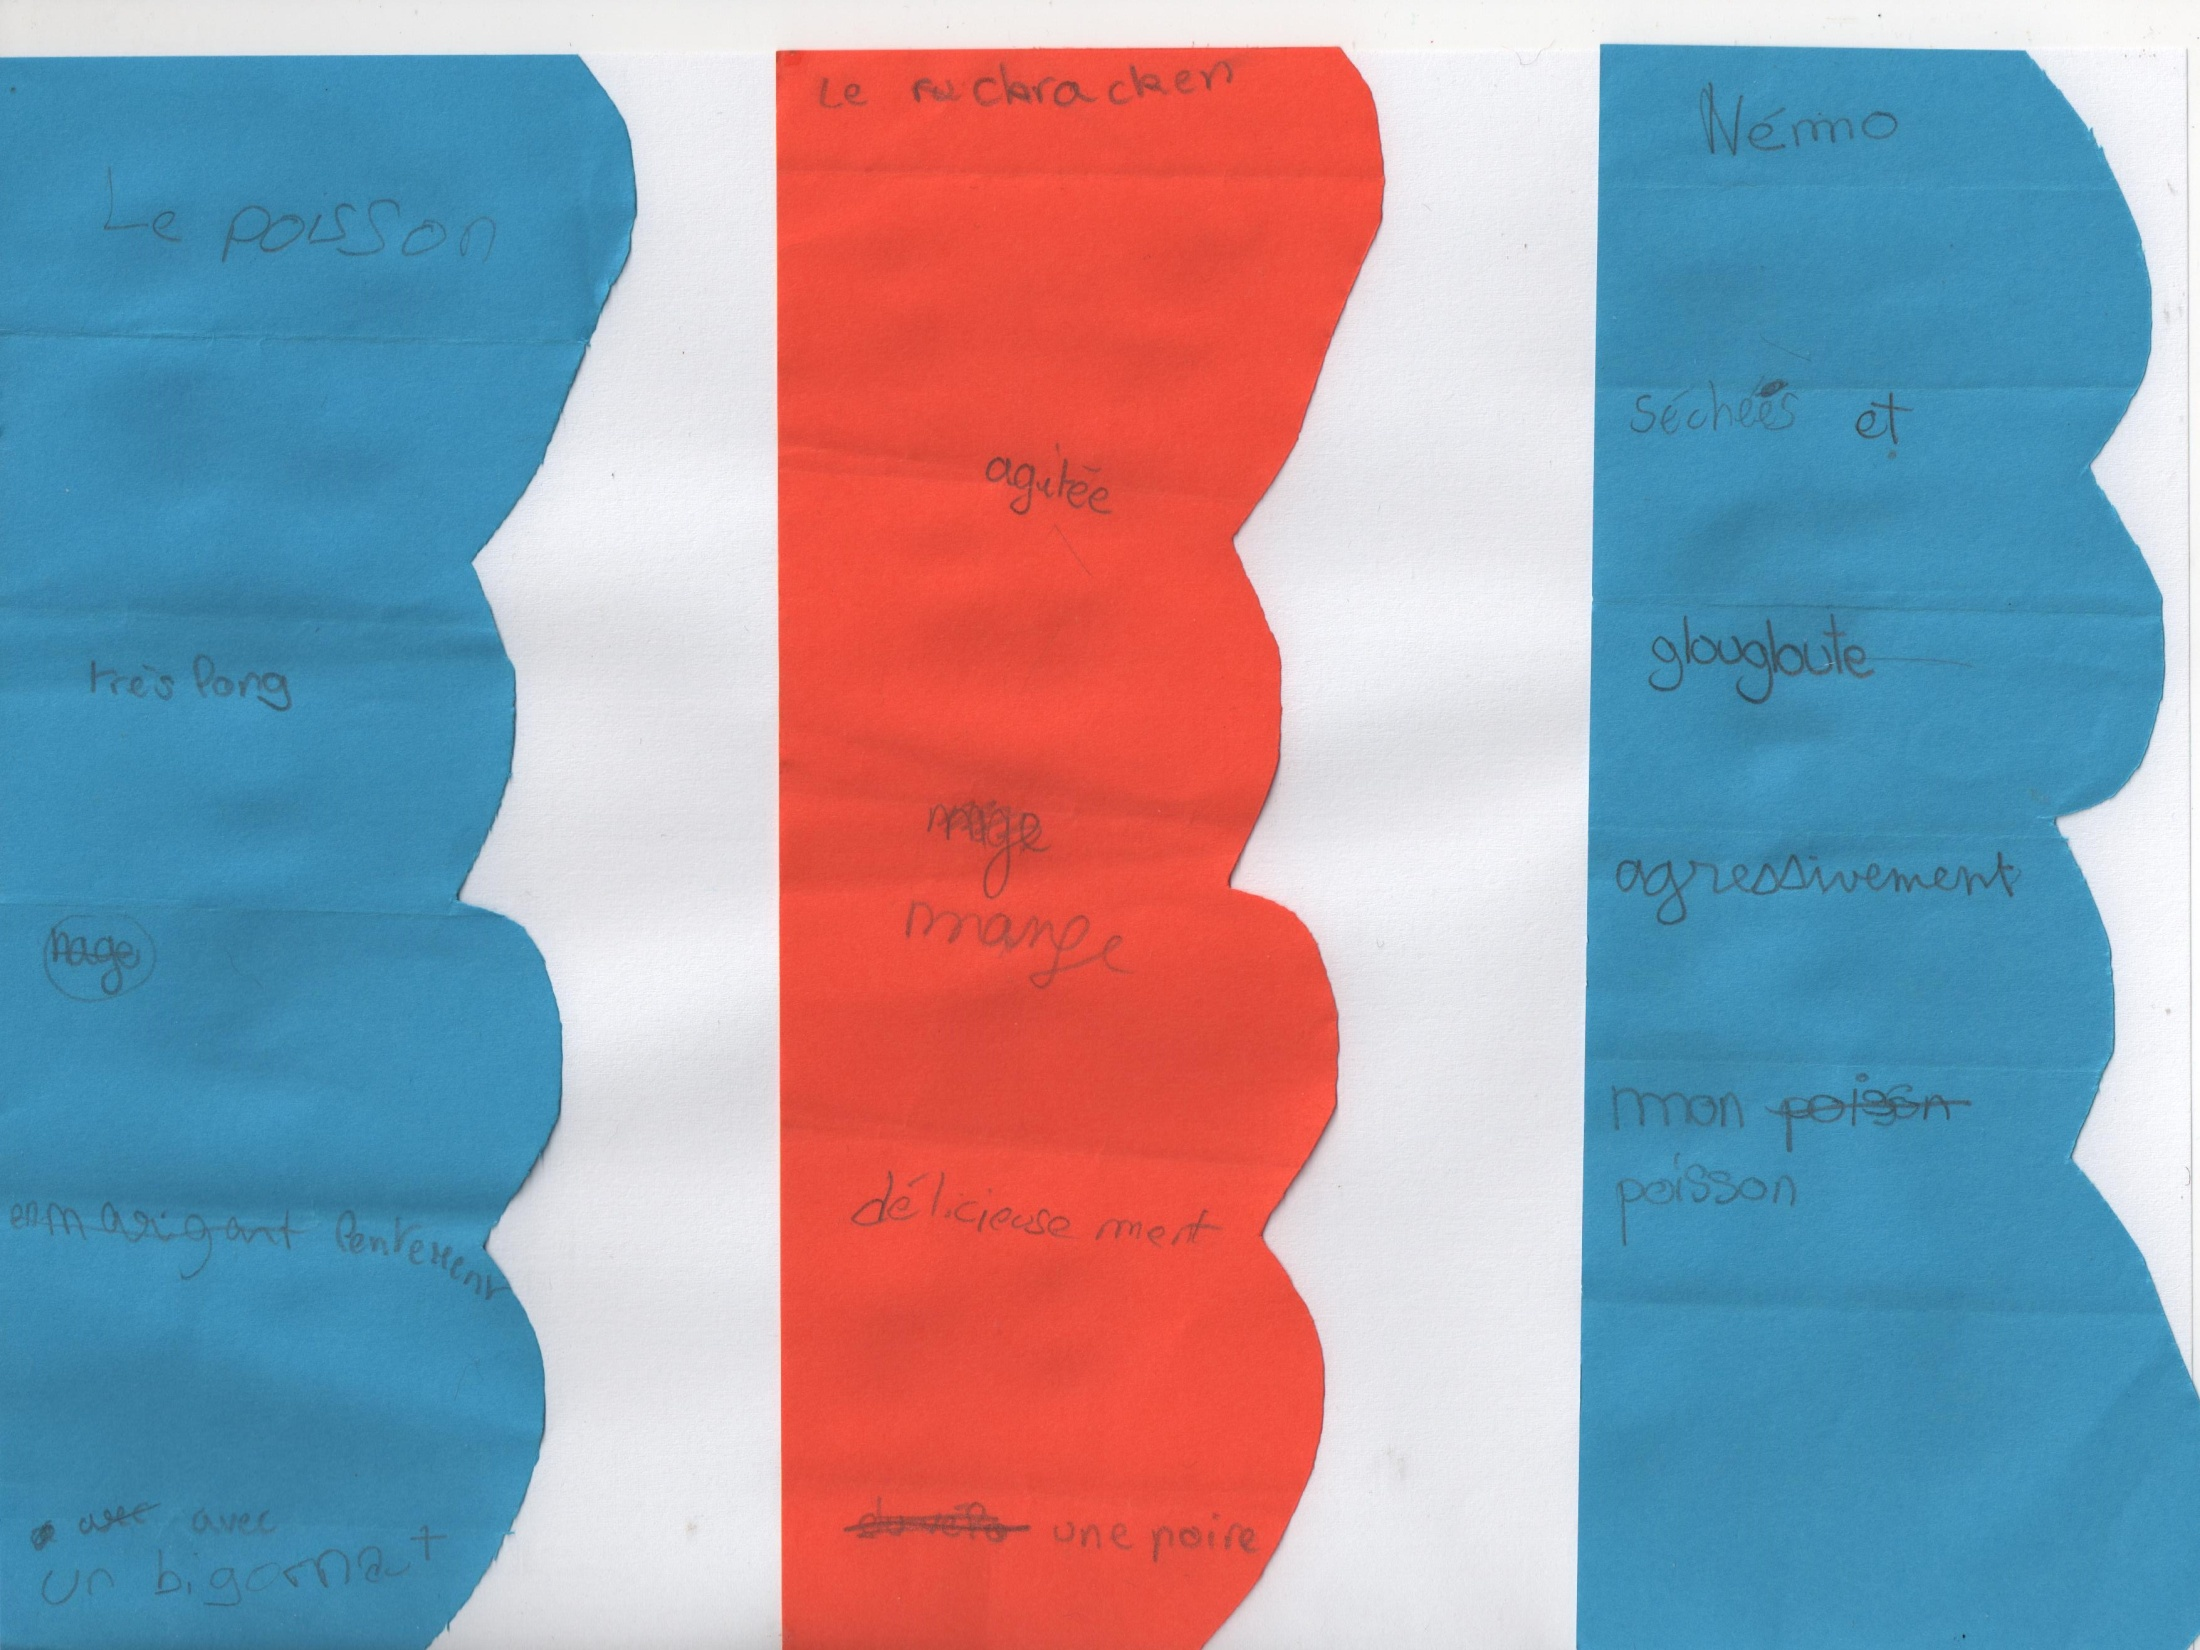 Le poisson
très long
nage
lentement
avec
un bigorna
Le
agitée
mange
délicieuse ment
une poire
Némo
séchées et
glougloute
agressivement
mon poisson
poisson